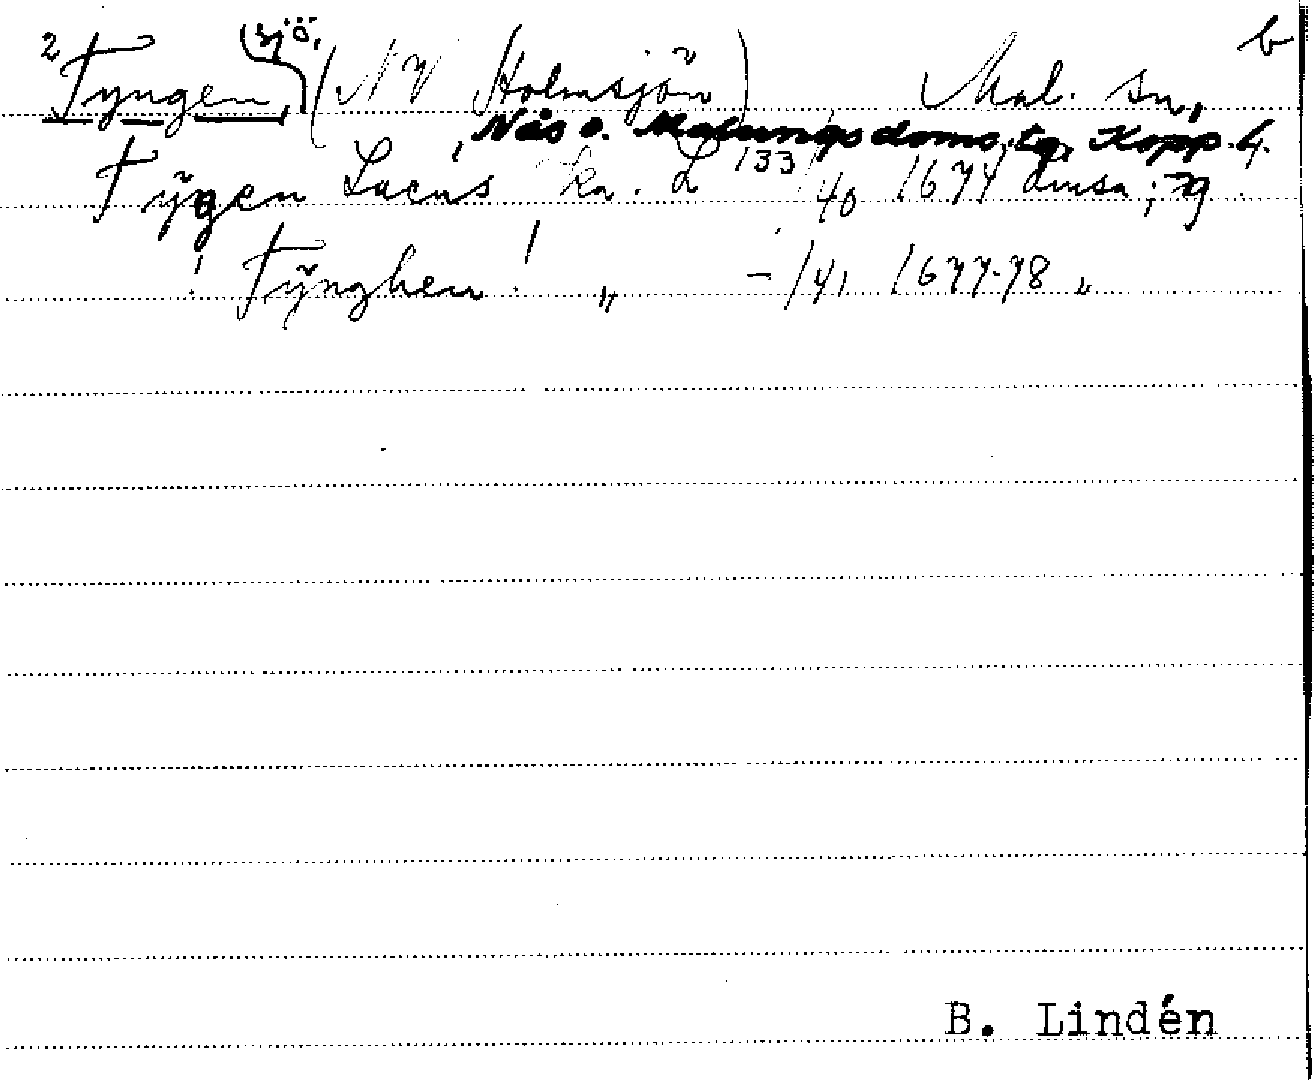 b
2 Tyngen, sjö, (NV Holmsjön) Mal. sn,
Nås o. Malungs doms. tg, Kopp. l.
Tÿgen Lacus ka. L 133/40 1674 avmså; 79
! Tÿnghen ! „ -/41 1677-78 „
B. Lindén